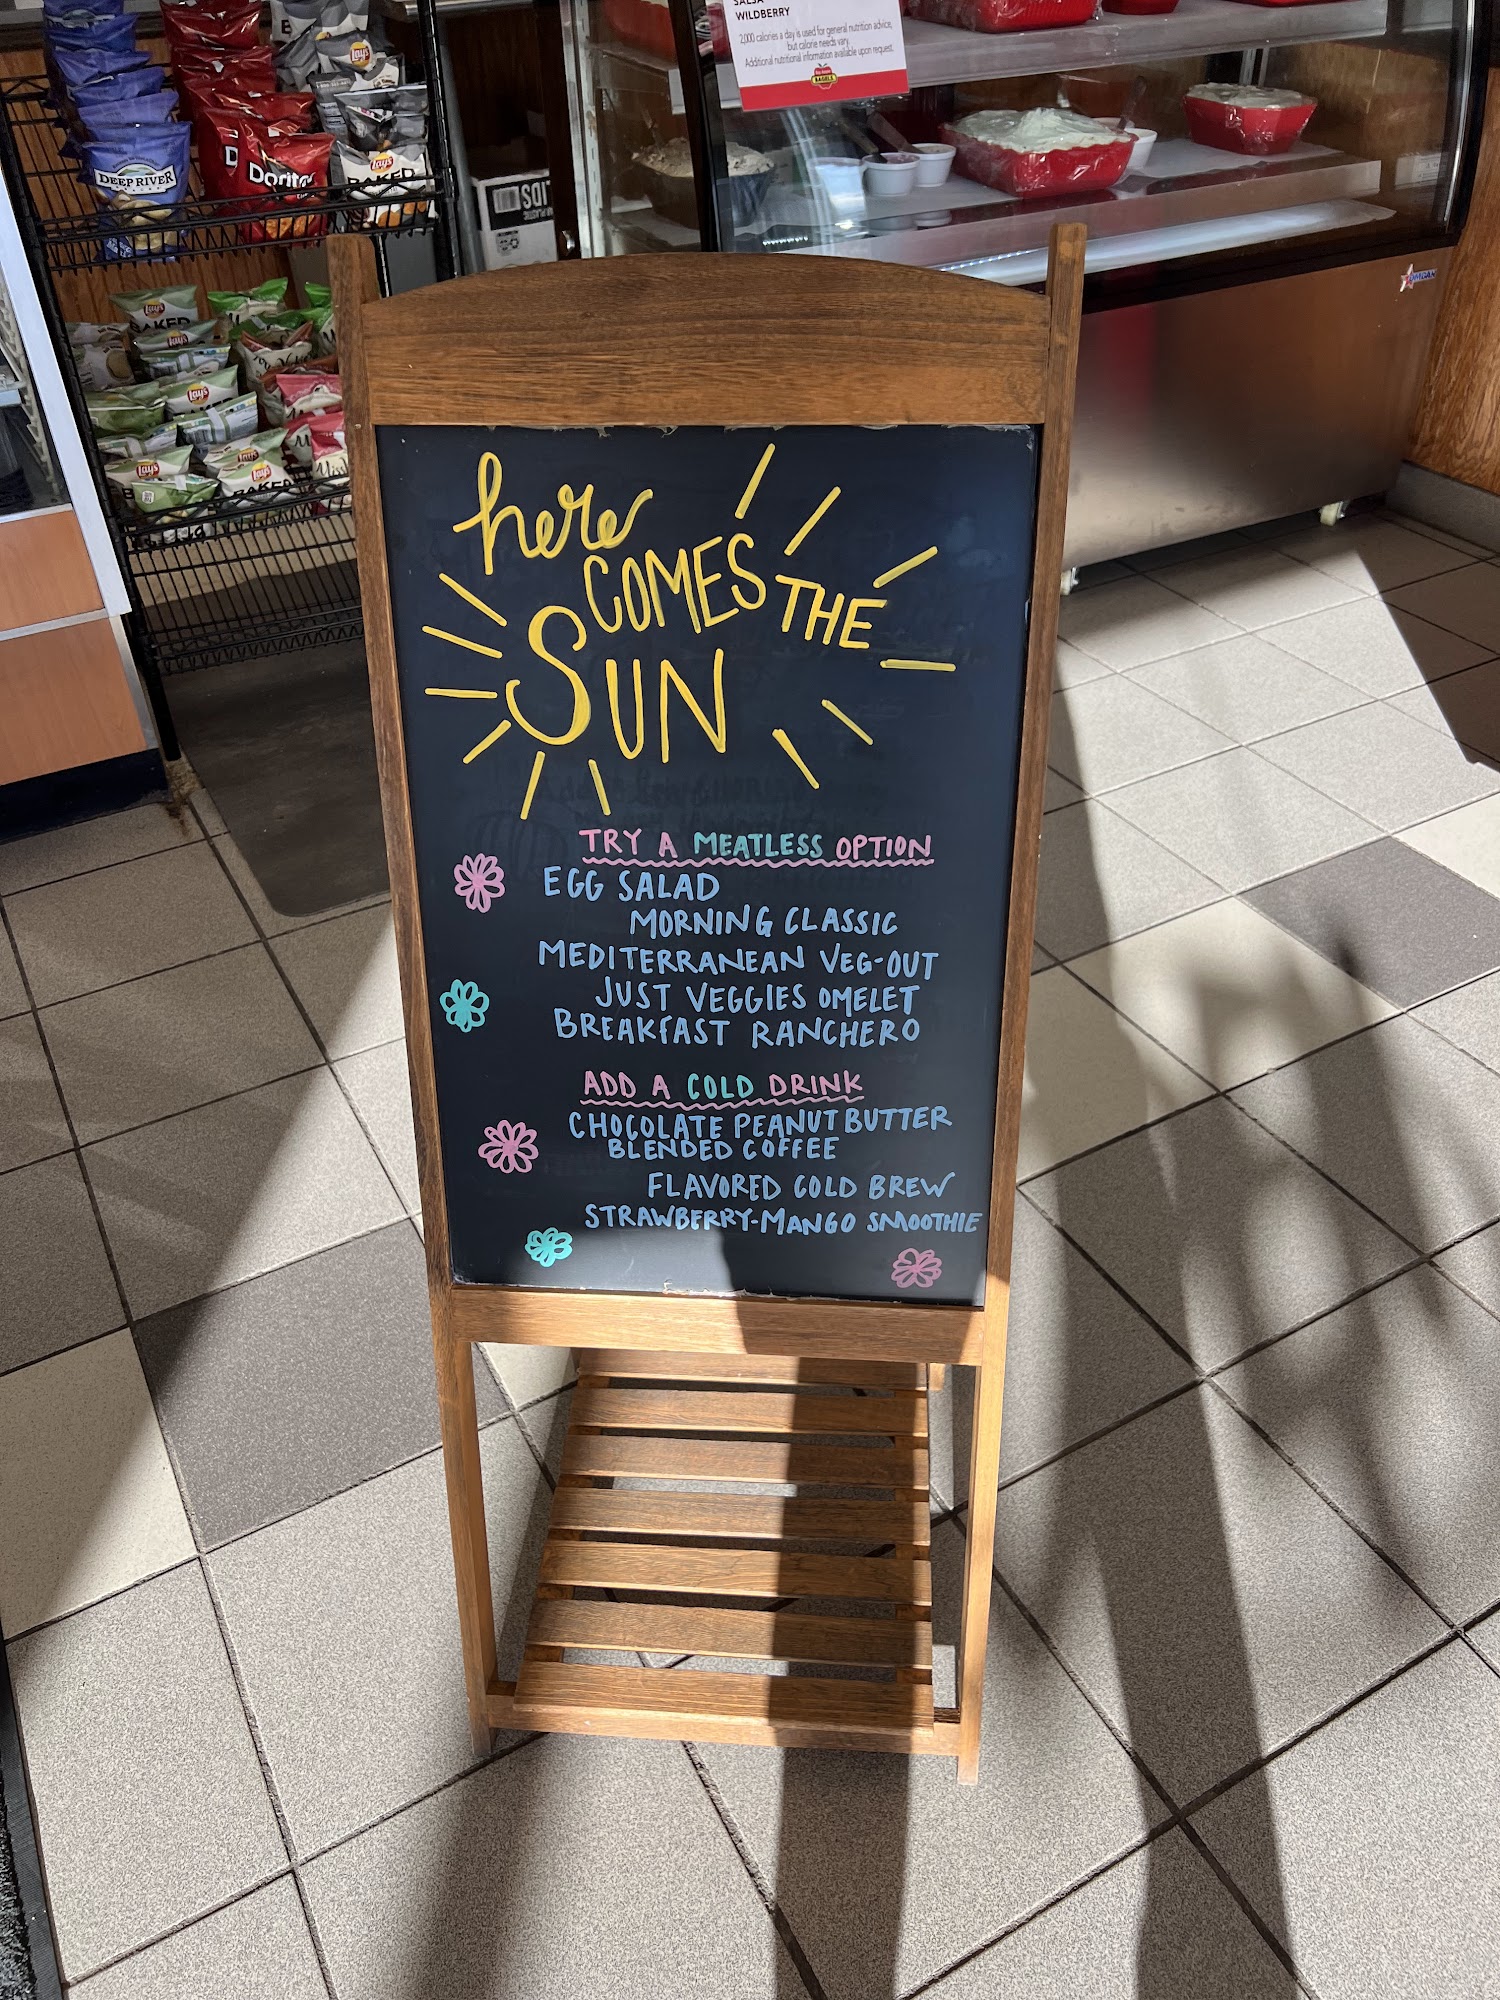 SALSA
WILDBERRY
2,000 calories a day is used for general nutrition advice,
but calorie needs vary.
Additional nutritional information available upon request.
BAGELS
DEEP RIVER
D
Doritos
Lay's
Lay's
BAKED
Lay's
BAKED
Lay's
Lay's
Lay's
Lay's
BAKED
here
COMES THE
SUN
TRY A MEATLESS OPTION
EGG SALAD
MORNING CLASSIC
MEDITERRANEAN VEG-OUT
JUST VEGGIES OMELET
BREAKFAST RANCHERO
ADD A COLD DRINK
CHOCOLATE PEANUT BUTTER
BLENDED COFFEE
FLAVORED COLD BREW
STRAWBERRY-MANGO SMOOTHIE